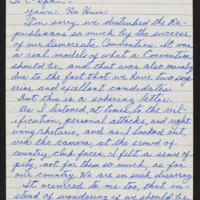 To C-Span -
Yawn. Ho Hum!
I'm sorry we disturbed the Re-
publicans so much by the success
of our Democratic Convention. It was
a real model of what a Convention
should be, and that was also mainly
due to the fact that we have two supe-
rior and excellent candidates.
But this is a sobering letter.
As I listened, at times, to the vil-
ification, personal attacks, and right
wing rhetoric, and as I looked out,
via the camera, at the crowd of
country club faces, I felt a sense of
pity, not for them so much, as for
our country. We are in such disarray.
It occurred to me too, that in-
stead of wondering if we should be